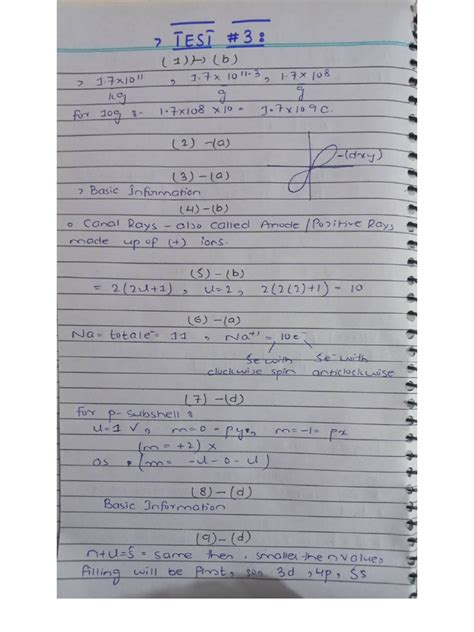 > TEST #3:
(1)↦(b)
> 1.7×10¹¹ , 1.7×10¹¹⁻³ , 1.7×10⁸
kg g g
for 10g :- 1.7×108 ×10 = 1.7×109C.
(2) -(a)
-(dxy)
(3) -(a)
> Basic Information
(4)-(b)
o Canal Rays - also called Anode/Positive Rays
made up of (+) ions.
(5)-(b)
= 2(2u+1), u=2, 2(2(2)+1) - 10
(6) -(a)
Na= total e⁻= 11 , Na⁺¹ - 10e⁻
5e with 5e⁻ with
clockwise spin anticlockwise
(7) -(d)
for p- subshell :
u=1 √, m=0 - py, m=-1= px
(m= +2) ×
as (m= -u-0-u)
(8)-(d)
Basic Information
(9)-(d)
n+u=5 = same then, smaller the n value,
filling will be first, so, 3d, 4p, 5s